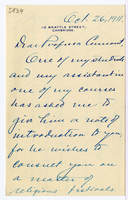 5834
10 BRATTLE STREET,
CAMBRIDGE.
Oct. 26, 1911.
Dear Professor Cumont,
One of my students
and my assistant in
one of my courses
has asked me to
give him a note of
introduction to you,
for he wishes to
consult you on
a matter of
religious festivals